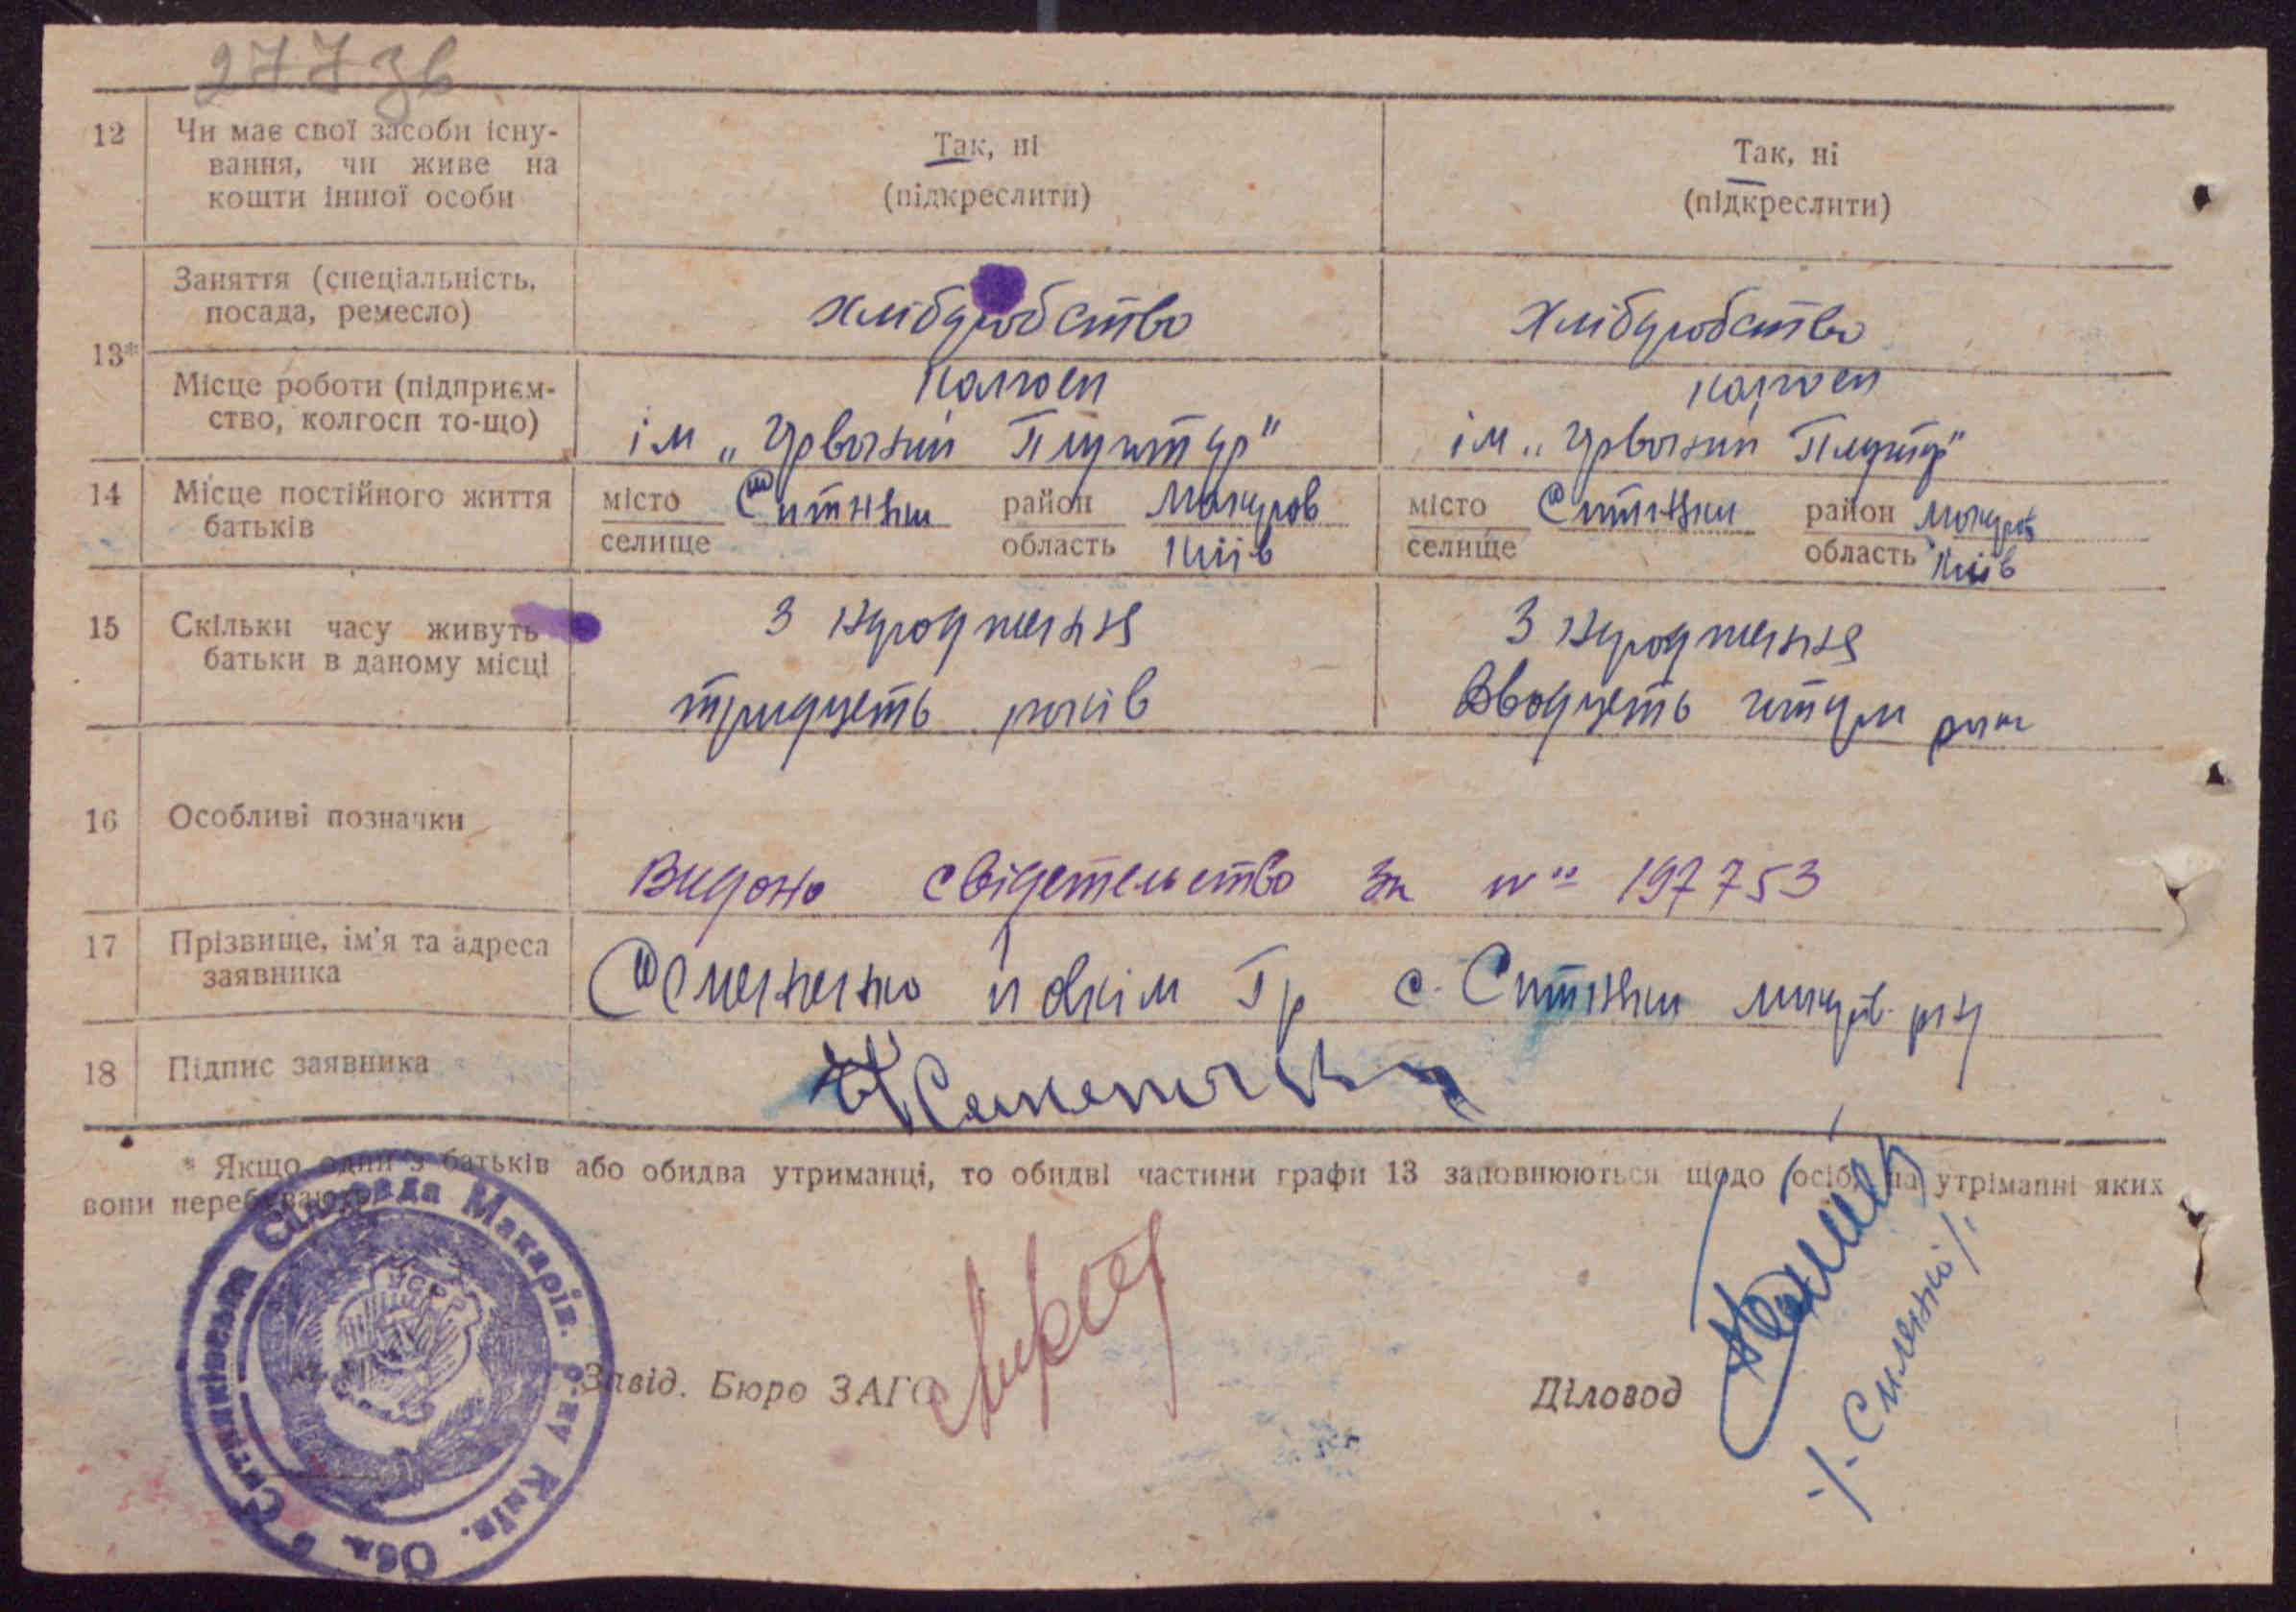 277 зв
12 Чи має свої засоби існу-
вання, чи живе на
кошти іншої особи
Так, ні
(підкреслити)
Так, ні
(підкреслити)
13*
Заняття (спеціальність,
посада, ремесло)
хлібдробство
хлібдробство
Місце роботи (підприєм-
ство, колгосп то-що)
колгосп
ім „
колгосп
ім „
14 Місце постійного життя
батьків
місто Ситняки район Макаров
селище область Київ
місто Ситняки район Макаров
селище область Київ
15 Скільки часу живуть
батьки в даному місці
З народження
тридцять років
З народження
двадцять чотири роки
16 Особливі позначки
Видано свідетельство за №" 197753
17 Прізвище, ім'я та адреса
заявника
Семененко Яким Гр с. Ситняки макар. р-ну
18 Підпис заявника
* Якщо один з батьків або обидва утриманці, то обидві частини графи 13 заповнюються щодо осіб, на утріманні яких
вони перебувають
Ситняківська Сільрада Макарів. р-ну Київ. Обл.
Завід. Бюро ЗАГС
Діловод